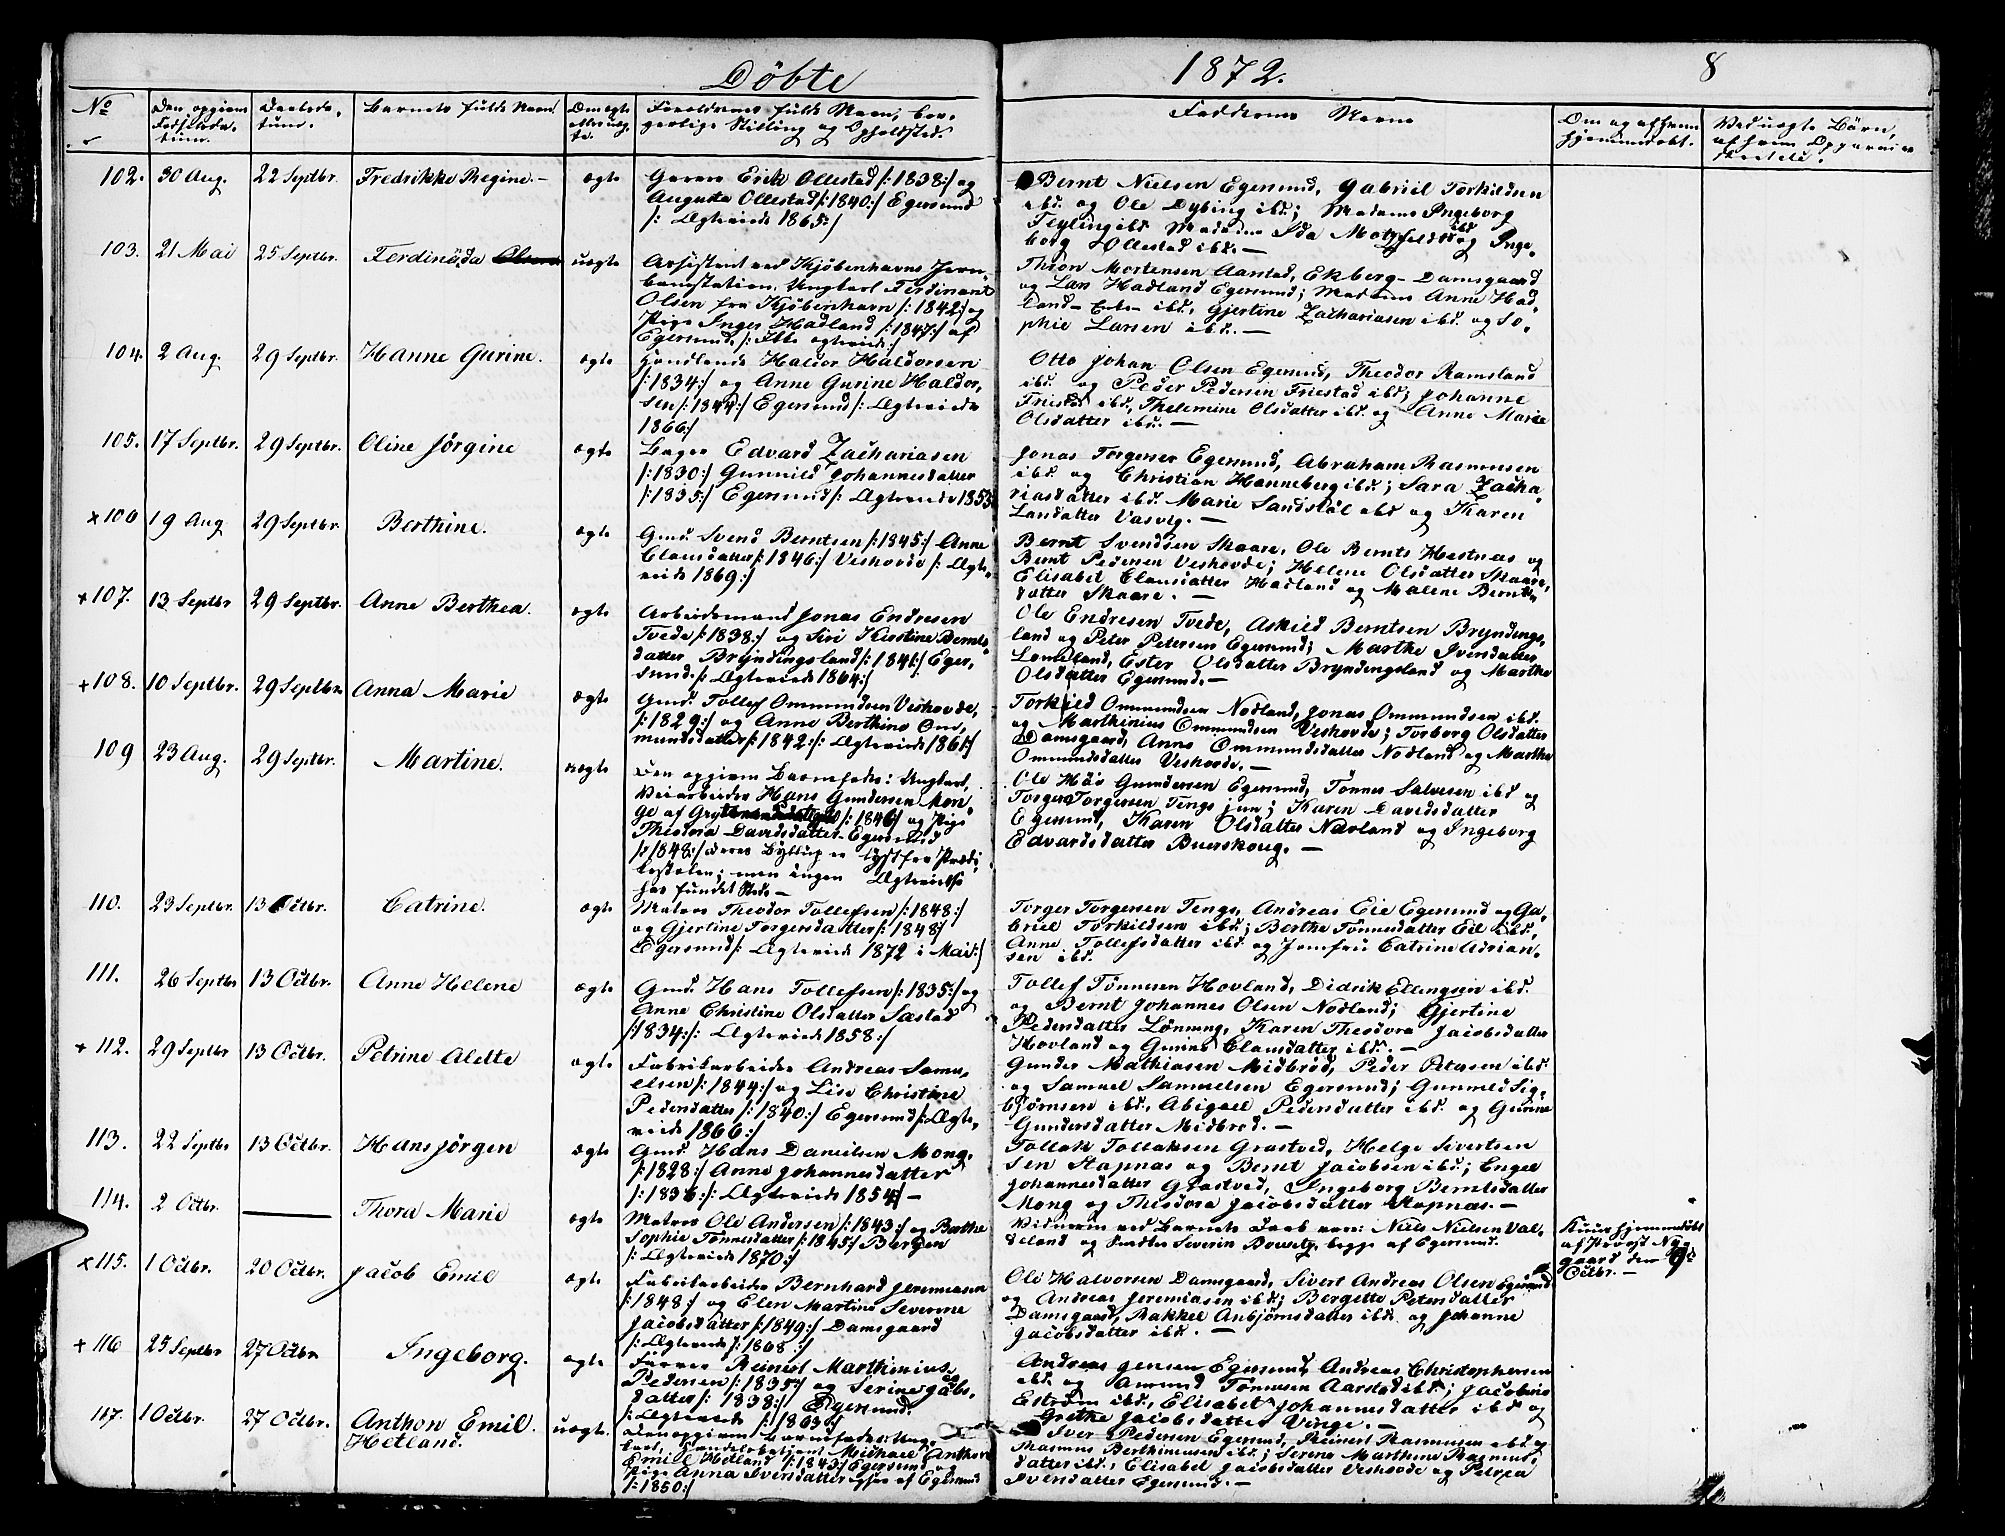 Döbte
1872.
8
No
Den opgivne Födselsdatum.
Daabsdatum.
Barnets fulde Navn
Om ægte eller uægte.
Foreldrenes fulde Navn, borgerlige Stilling og Opholdsted.
Faddernes Navne
Om og af hvem hjemmedöbt.
Ved uægte Börn, af hvem Opgaven er meddelt.
102. 30 Aug. 22 Septbr. Fredrikke Regine.— ægte
Garver Erik Ollestad /:1838:/ og
Augusta Ollestad /:1840:/ Egersund
/: Ægteviede 1865:/
Bernt Nielsen Egersund, Gabriel Torkildsen
ibd. og Ole Dybing ibd.; Madame Ingeborg
Feyling ibd. Madame Ida Motzfeldt ibd. og Inge-
borg Ollestad ibd.—
103. 21 Mai 25 Septbr. Ferdinanda uægte
Assistent ved Kjöbenhavns Jern-
banestation, Ungkarl Ferdinant
Olsen fra Kjöbenhavn /:1842:/ og
Pige Inger Hadland /:1847:/ af
Egersund /: Ikke ægteviede:/
Theon Mortensen Aarstad, Ekberg Damsgaard
og Lars Hadland Egersund; Madame Anne Had-
land ibd., Gjertine Zachariasen ibd. og So-
phie Larsen ibd.—
104. 2 Aug. 29 Septbr. Hanne Gurine. ægte
Handlende Haldor Haldorsen
/:1834:/ og Anne Gurine Haldor-
sen /:1844:/ Egersund /: Ægteviede
1866:/
Otto Johan Olsen Egersund, Theodor Ramsland
ibd. og Peder Pedersen Friestad ibd.; Johanne
Friestad ibd., Thelemine Olsdatter ibd. og Anne Marie
Olsdatter ibd.—
105. 17 Septbr. 29 Septbr. Oline Jörgine ægte
Bager Edvard Zachariasen
/:1830:/ Gunnild Johannesdatter
/:1835:/ Egersund /: Ægteviede 1853
Jonas Torgersen Egersund, Abraham Rasmusen
ibd. og Christian Hanneberg ibd.; Sara Zacha-
riasdatter ibd. Marie Sandstöl ibd og Karen
Larsdatter Vasvig.—
x 106 19 Aug 29 Septbr. Berthine. ægte
Gmd. Svend Berntsen /:1845:/ Anne
Clausdatter /:1846:/ Veshovde /: Ægte-
viede 1869:/
Bernt Svendsen Skaare, Ole Bernts. Hestnæs og
Bernt Pedersen Veshovde; Helene Olsdatter Skaare,
Elisabet Clausdatter Hadland og Malene Bernts-
datter Skaare.—
+ 107. 13 Septbr 29 Septbr. Anne Berthea. ægte
Arbeidsmand Jonas Endresen
Tvede /:1838:/ og Siri Kirstine Bernts-
datter Bryndingsland /:1841:/ Eger-
sund. /: Ægteviede 1864:/
Ole Endresen Tvede, Askild Berntsen Bryndings-
land og Peter Petersen Egersund; Marthe Iversdatter
Lomeland, Ester Olsdatter Bryndingsland og Marthe
Olsdatter Egersund.—
+ 108. 10 Septbr. 29 Septbr Anna Marie ægte
Gmd. Tollef Ommundsen Veshovde,
/:1829:/ og Anne Berthine Om-
mundsdatter /:1842:/: Ægteviede 1861:/
Torkild Ommundsen Nodland, Jonas Ommundsen ibd.
og Marthinius Ommundsen Veshovde; Torborg Olsdatter
Damsgaard, Anne Ommundsdatter Nodland og Marthe
Ommundsdatter Veshovde.—
109 23 Aug. 29 Septbr. Martine. uægte
Den opgivne Barnefader: Ungkarl,
Veiarbeider Hans Gundersen Mon
ge af /:1846/ og Pige
Theodora Davidsdatter Egersund
/:1848:/ deres Lysning er lyst fra Prædi-
kestolen; men ingen Ægtevielse
har fundet Sted.—
Ole Höv Gundersen Egersund, Tönnes Salvesen ibd og
Torger Torgersen Tengs jun; Karen Davidsdatter
Egersund, Karen Olsdatter Navland og Ingeborg
Edvardsdatter Buerskoug.—
110. 23 Septbr. 13 Octbr. Catrine. ægte
Matros Theodor Tollefsen /:1848:/
og Gjertine Torgersdatter /:1848/
Egersund /: Ægteviede 1872 i Mai:/
Torger Torgersen Tengs, Andreas Eie Egersund og Ga-
briel Torkildsen ibd.; Berthe Tonnesdatter Eie ibd.,
Anne Tollefsdatter ibd. og Jomfru Catrine Adrian-
sen ibd.
111. 26 Septbr 13 Octbr. Anne Helene ægte
Gmd. Hans Tollefsen /:1835:/ og
Anne Christine Olsdatter Sæstad
/:1834:/: Ægteviede 1858:/
Tollef Tönnesen Hovland, Didrik Ellingsen ibd.
og Bernt Johannes Olsen Nodland; Gjertine
Pedersdatter Lönning, Karen Theodora Jacobsdatter
Hovland og Gurine Clausdatter ibd.—
+ 112. 29 Septbr 13 Octbr. Petrine Alette ægte
Fabrikarbeider Andreas Samu-
elsen /:1844:/ og Lise Christine
Pedersdatter /:1840:/ Egersund /: Ægte-
viede 1866:/
Gunder Mathiasen Midbröd, Peder Petersen ibd.
og Samuel Samuelsen Egersund; Gunnild Sig-
björnsen ibd., Abigael Pedersdatter ibd. og Gurine
Gundersdatter Midbröd.—
113. 22 Septbr 13 Octbr. Hans Jörgen ægte
Gmd. Hans Danielsen Mong.
/:1828:/ Anne Johannesdatter
/:1836:/: Ægteviede 1854/—
Tollak Tollaksen Grastved, Helge Sivertsen
sen Stapnæs og Bernt Jacobsen ibd.; Engel
Johannesdatter Grastved, Ingeborg Berntsdatter
Mong og Theodora Jacobsdatter Stapnæs.—
114. 2 Octbr. — Thora Marie ægte
Matros Ole Andersen /:1843:/ og Berthe
Sophie Tönnesdatter /:1845:/ Bergen
/: Ægteviede 1870:/
Vidnerne ved Barnets Daab var: Niels Nielsen Val-
deland og Severin Bowitz, begge af Egersund.
Kuns hjemmedöbt
af Provst Ny-
gaard den 9de
Octbr.—
x 115. 1 Octbr. 20 Octbr. Jacob Emil ægte
Fabrikarbeider Bernhard Jeremiasen
/:1848:/ og Elen Martine Severine
Jacobsdatter /:1849:/ Damsgaard
/: Ægteviede 1868:/
Ole Halvorsen Damsgaard, Sivert Andreas Olsen Egersund
og Andreas Jeremiasen ibd.; Bergette Petersdatter
Damsgaard, Rakkel Asbjörnsdatter ibd. og Johanne
Jacobsdatter ibd.—
+ 116 25 Septbr 27 Octbr Ingeborg. ægte
Farver Reinert Marthinius
Pedersen /:1835:/ og Serine Jacobs-
datter /:1838:/ Egersund.
/: Ægteviede /:1863:/
Andreas Jensen Egersund, Andreas Christophersen
ibd. og Amund Tonnesen Aarstad ibd.; Jacobine
Eström ibd., Elisabet Johannesdatter ibd og
Grethe Jacobsdatter Vinge.—
117. 1 Octbr. 27 Octbr. Anthon Emil Hetland. uægte.
Den opgivne Barnefader Ung-
karl, Handelsbetjent Michael Anthon
Emil Hetland /:1843:/ Egersund og
Pige Anna Iversdatter af Egersund
/:1850:/
Iver Pedersen Egersund, Reinert Rasmusen ibd og
Rasmus Berthineusen ibd.; Serene Marthine Rasmus-
datter ibd., Elisabel Jacobsdatter Veshovde og Petrea
Iversdatter Egersund.—